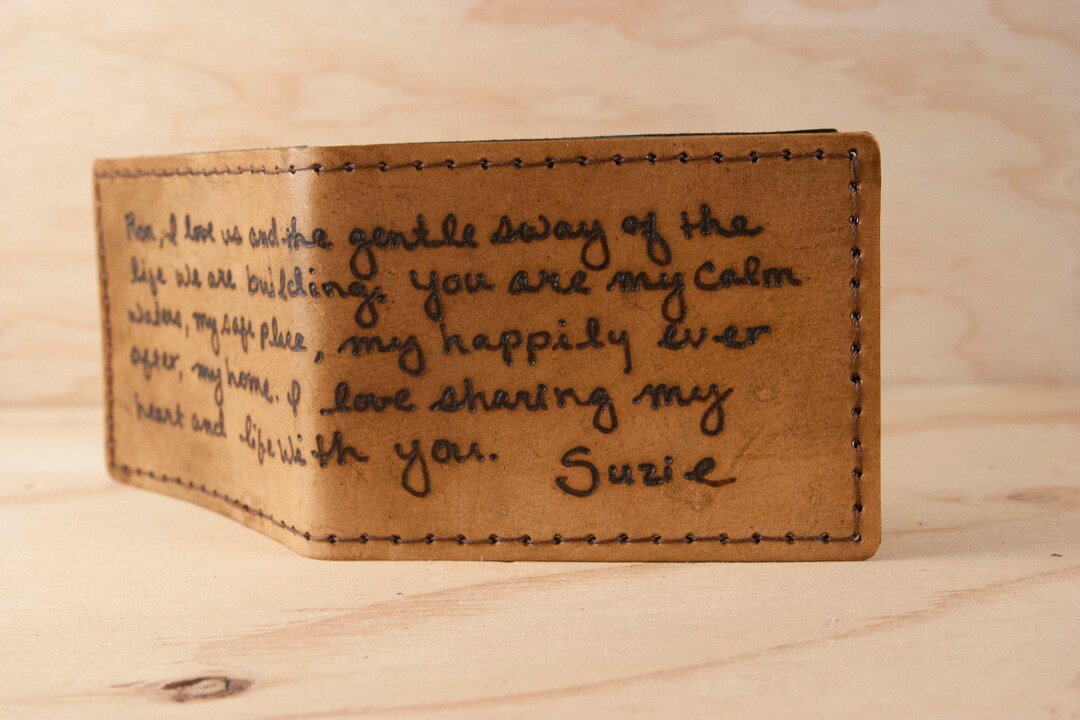 I love us and the gentle sway of the
life we are building. You are my calm
waters, my safe place, my happily ever
after, my home. I love sharing my
heart and life with you.
Suzie